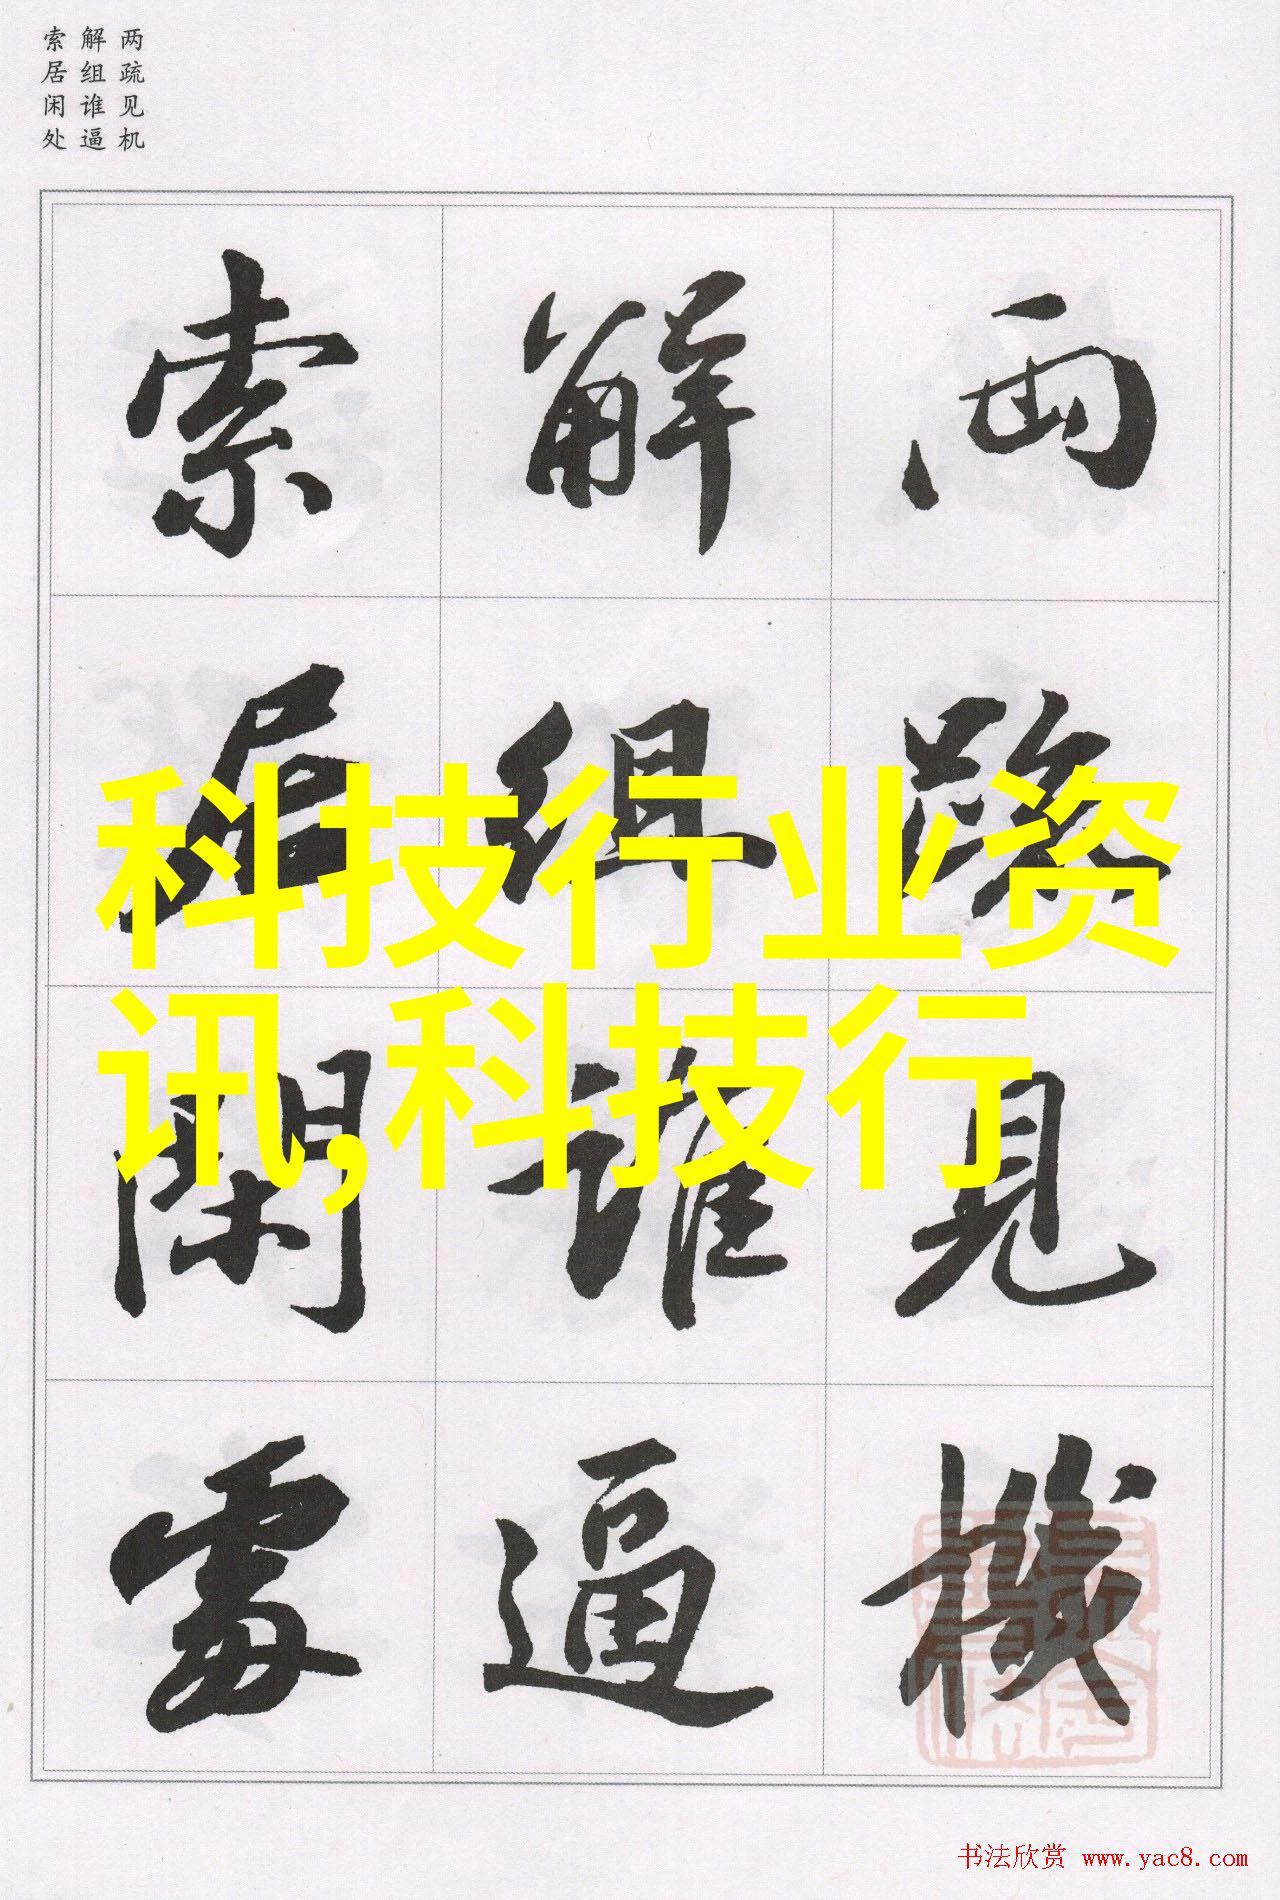 两疏见机
解组谁逼
索居闲处
两疏見機
解組誰逼
索居閑處
科技行业资
讯,科技行
书法欣赏 www.yac8.com